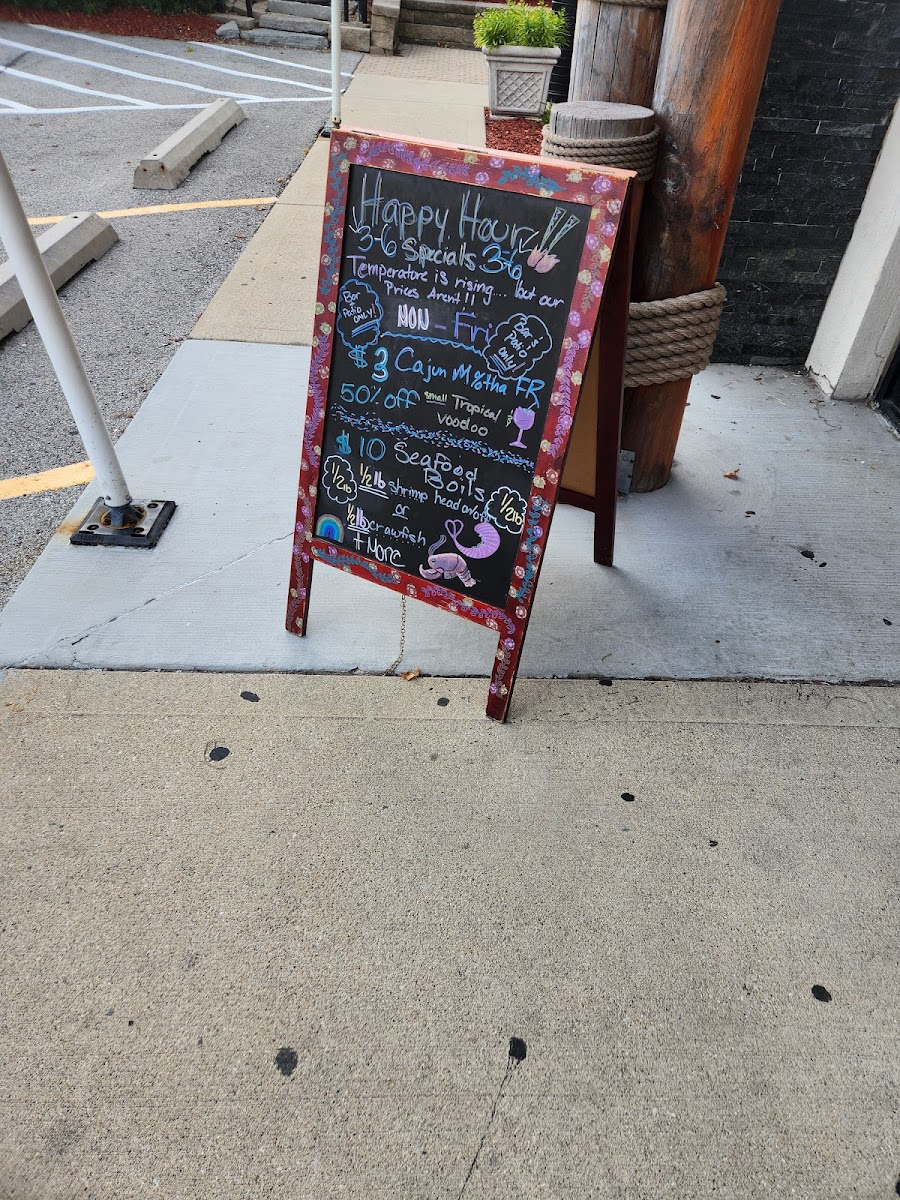 Happy Hour
3-6 Specials 3-6
Temperature is rising... but our
Prices Arent!!
Bar & Patio ONLY!
MON - Fri
Bar & Patio Only!
$3 Cajun M*%tha FR
50% off small Tropical
voodoo
$10 Seafood
Boils
1/2 lb
1/2 lb shrimp head on/off
1/2 lb
or
1/2 lb crawfish
+ More